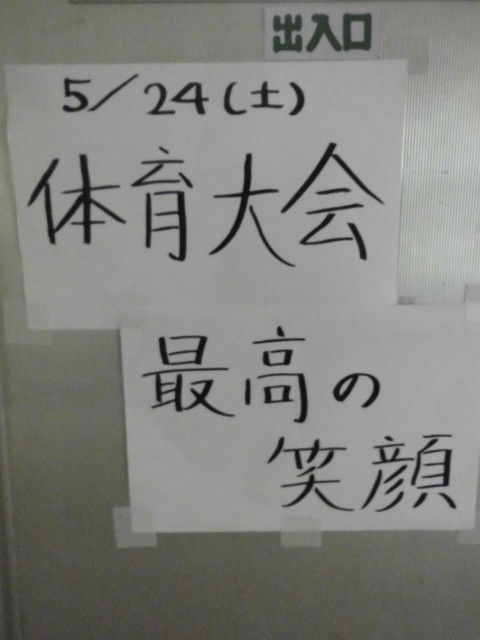 出入口
5/24(土)
体育大会
最高の
笑顔